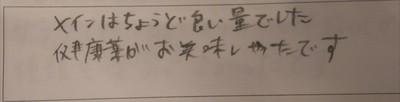 メインはちょうど良い量でした
健康葉がお気味しやったです